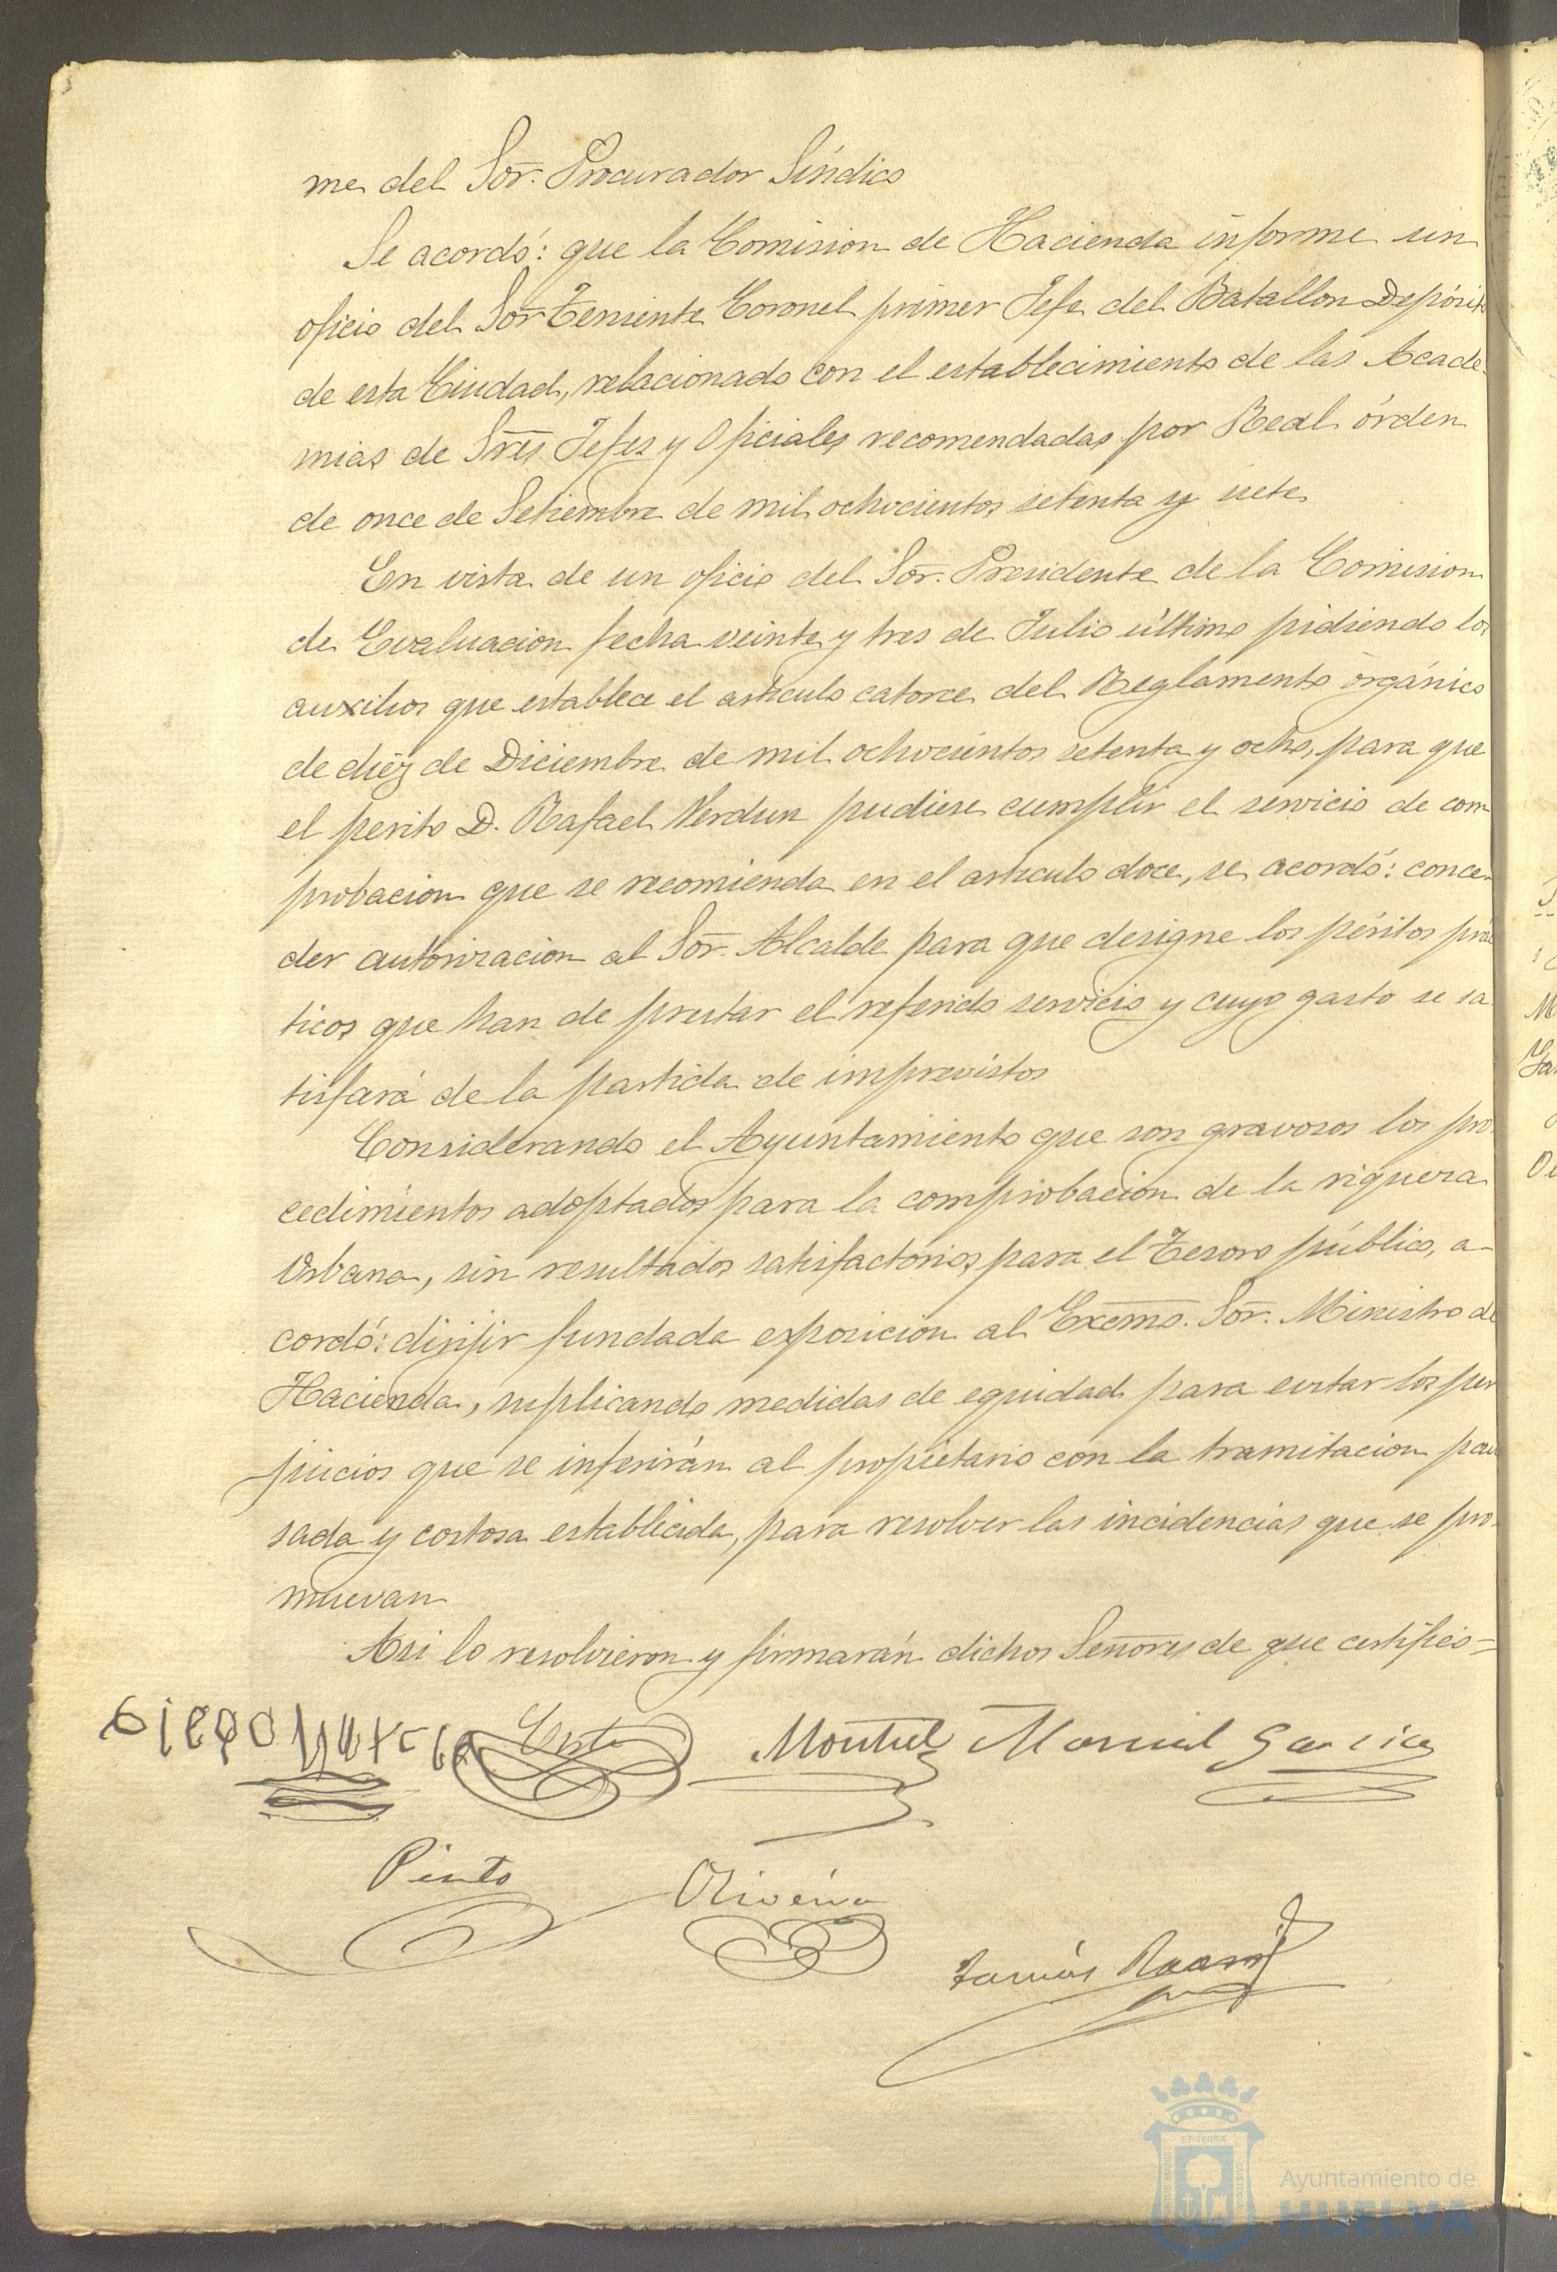 me del Sor. Procurador Síndico
Se acordó: que la Comision de Hacienda informe un
oficio del Sor Teniente Coronel primer Jefe del Batallon Depósito
de esta Ciudad, relacionado con el establecimiento de las Acade-
mias de Sres Jefes y Oficiales recomendadas por Real órden
de once de Setiembre de mil ochocientos setenta y siete
En vista de un oficio del Sor. Presidente de la Comision
de Evaluacion fecha veinte y tres de Julio último pidiendo los
auxilios que establece el articulo catorce del Reglamento orgánico
de diez de Diciembre de mil ochocientos setenta y ocho, para que
el perito D. Rafael Verdun pudiese cumplir el servicio de com
probacion que se recomienda en el articulo doce, se acordó: conce-
der autorizacion al Sor. Alcalde para que designe los péritos prác
ticos que han de prestar el referido servicio y cuyo gasto se sa
tisfará de la partida de imprevistos
Considerando el Ayuntamiento que son gravosos los pro
cedimientos adoptados para la comprobacion de la riqueza
Urbana, sin resultados satisfactorios para el Tesoro público, a-
cordó: dirijir fundada exposicion al Excmo. Sor. Ministro de
Hacienda, suplicando medidas de equidad para evitar los per
juicios que se inferirán al propietario con la tramitacion pau
sada y costosa establecida, para resolver las incidencias que se pro-
muevan
Asi lo resolvieron y firmarán dichos Señores de que certifico=
Montiel Marcial Garcia
Pinto Oliveira
Tomás
ET TERRÆ
PORTUS MARIS
CUSTODIA
Ayuntamiento de
HUELVA